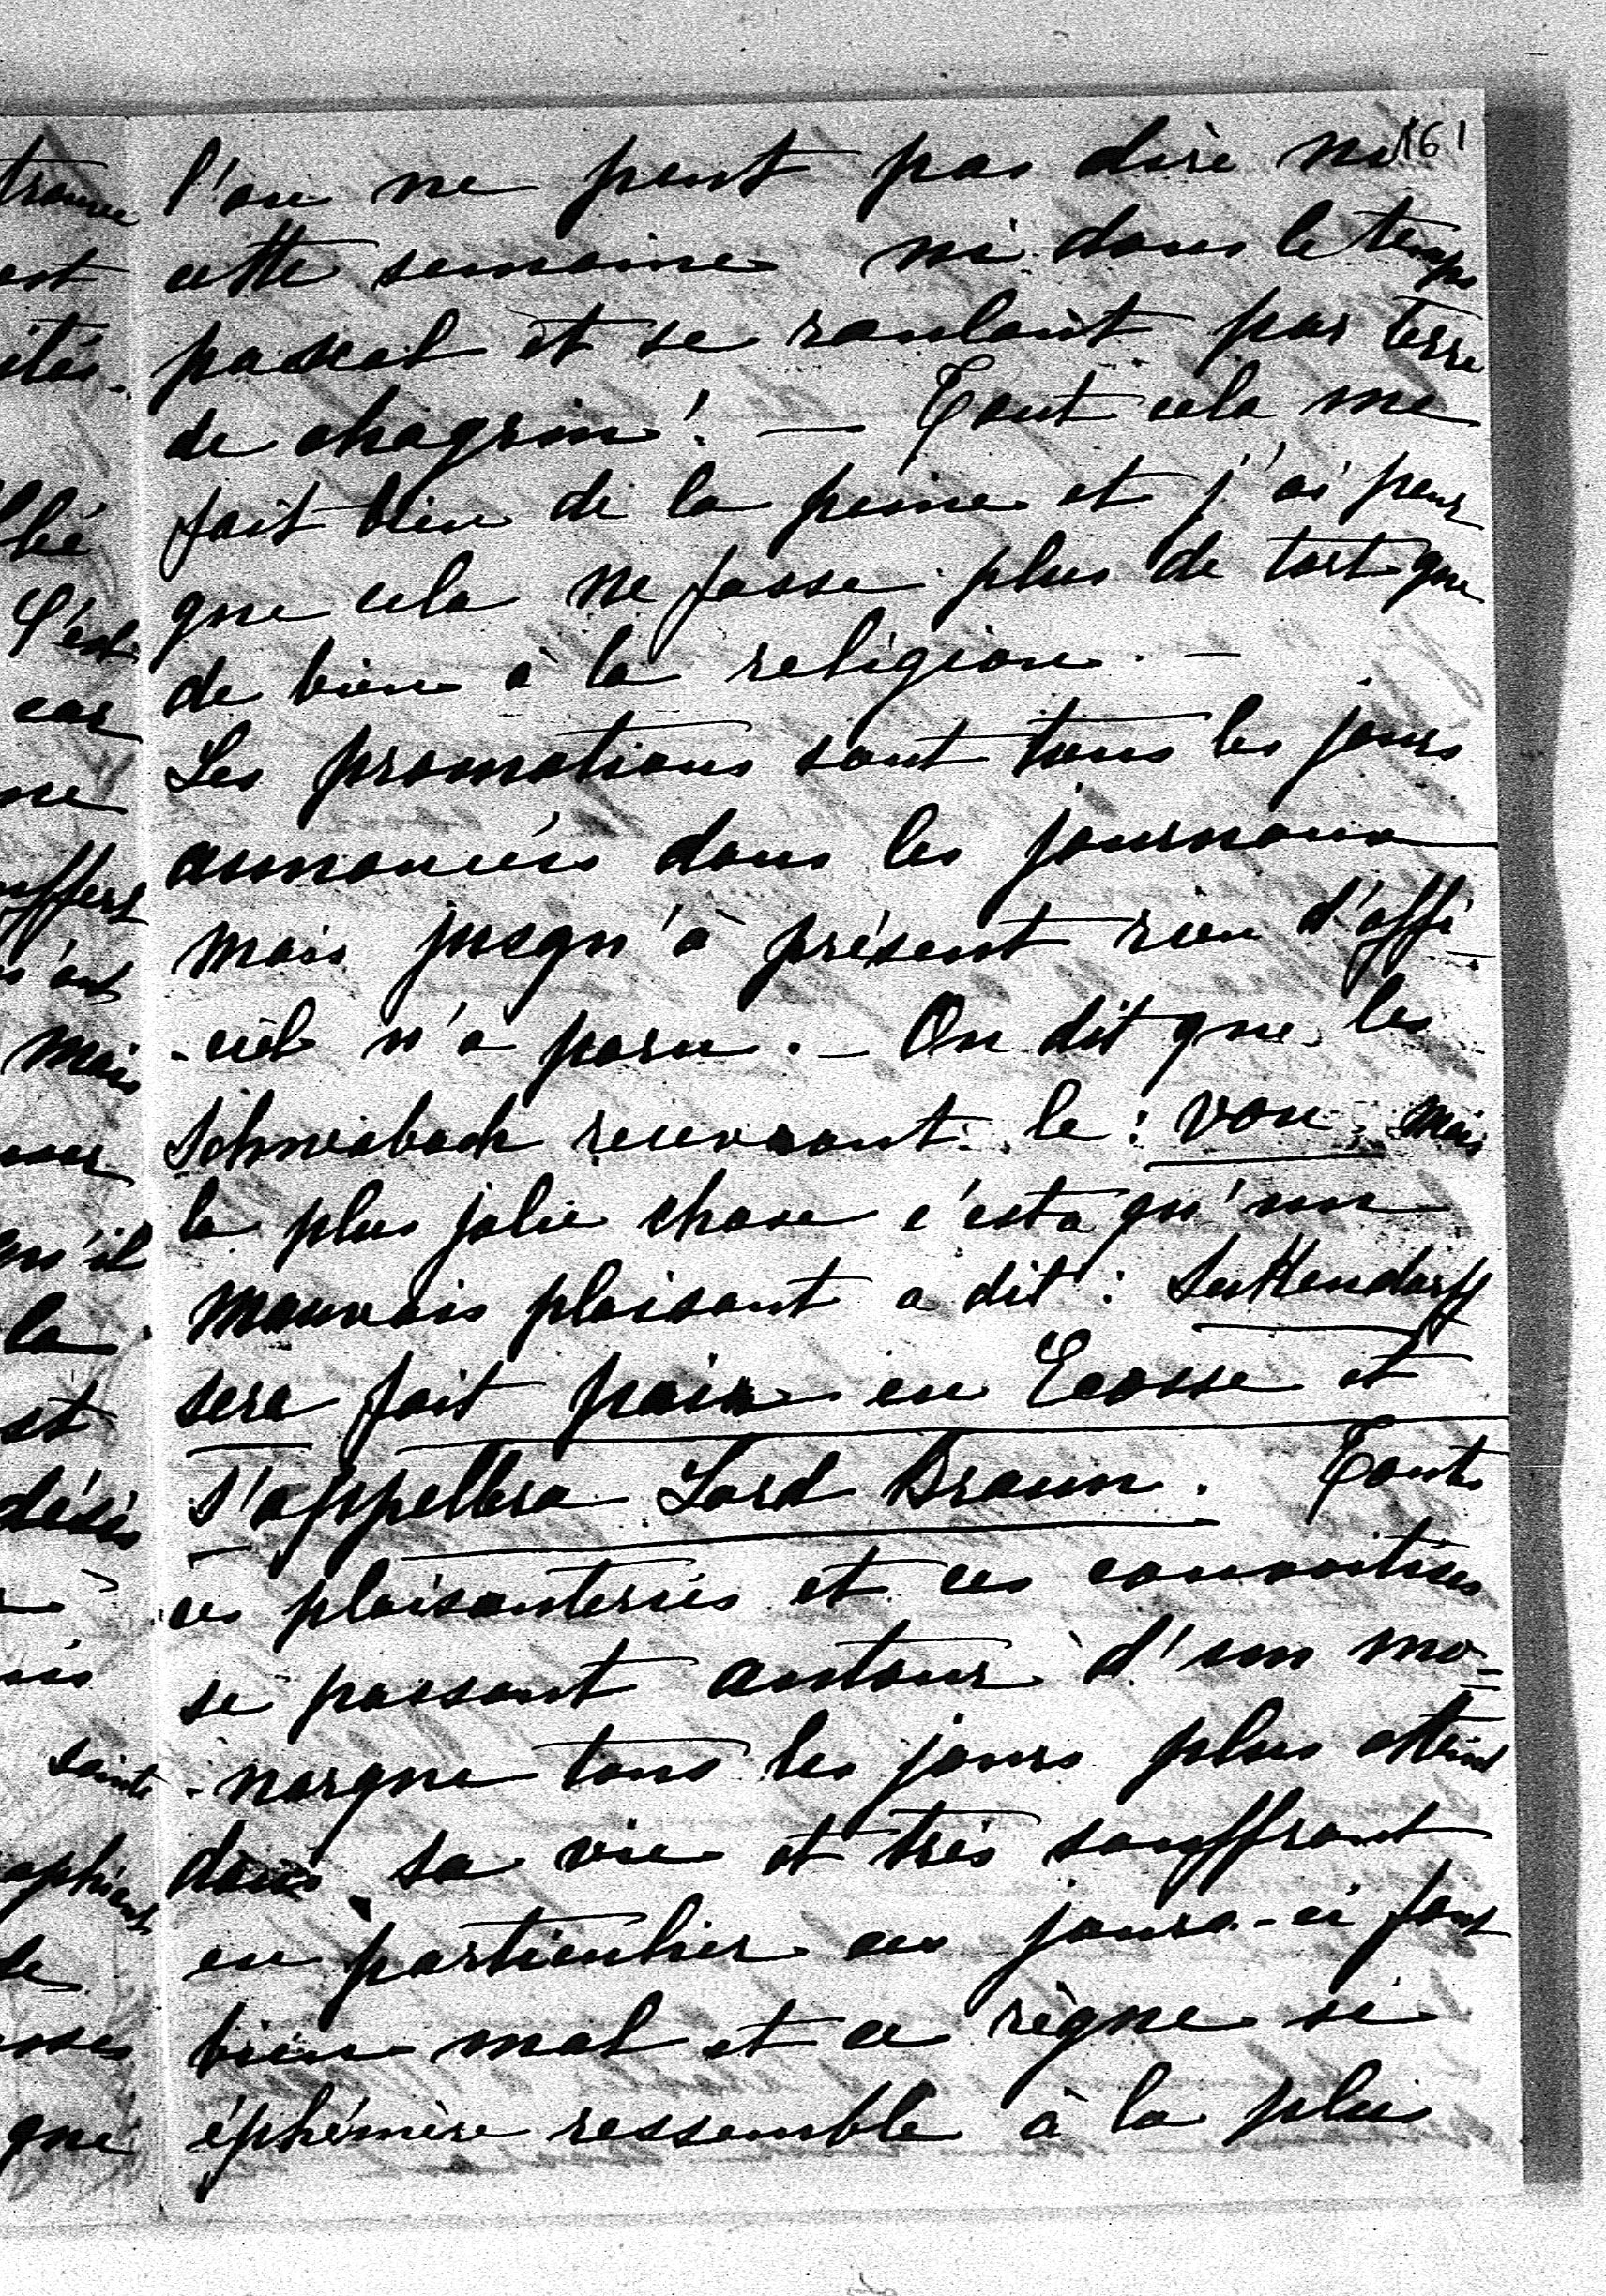 161
l'on ne peut pas dire ni
cette semaine ni dans le temps
pascal et se roulant par terre
de chagrin! — Tout cela me
fait bien de la peine et j'ai peur
que cela ne fasse plus de tort que
de bien à la religion. —
Les promotions sont tous les jours
annoncées dans les journaux
mais jusqu'à présent rien d'offi-
-ciel n'a paru. — On dit que les
Schwabach recevront le: von, mais
la plus jolie chose c'est qu'un
mauvais plaisant a dit: Seckendorff
sera fait pair en Ecosse et
s'appellera Lord Braun. Toutes
ces plaisanteries et ces convoitises
se passant autour d'un mo=
-narque tous les jours plus atteint
dans sa vie et très souffrant
en particulier ces jours-ci font
bien mal et ce règne si
éphémère ressemble à la plus